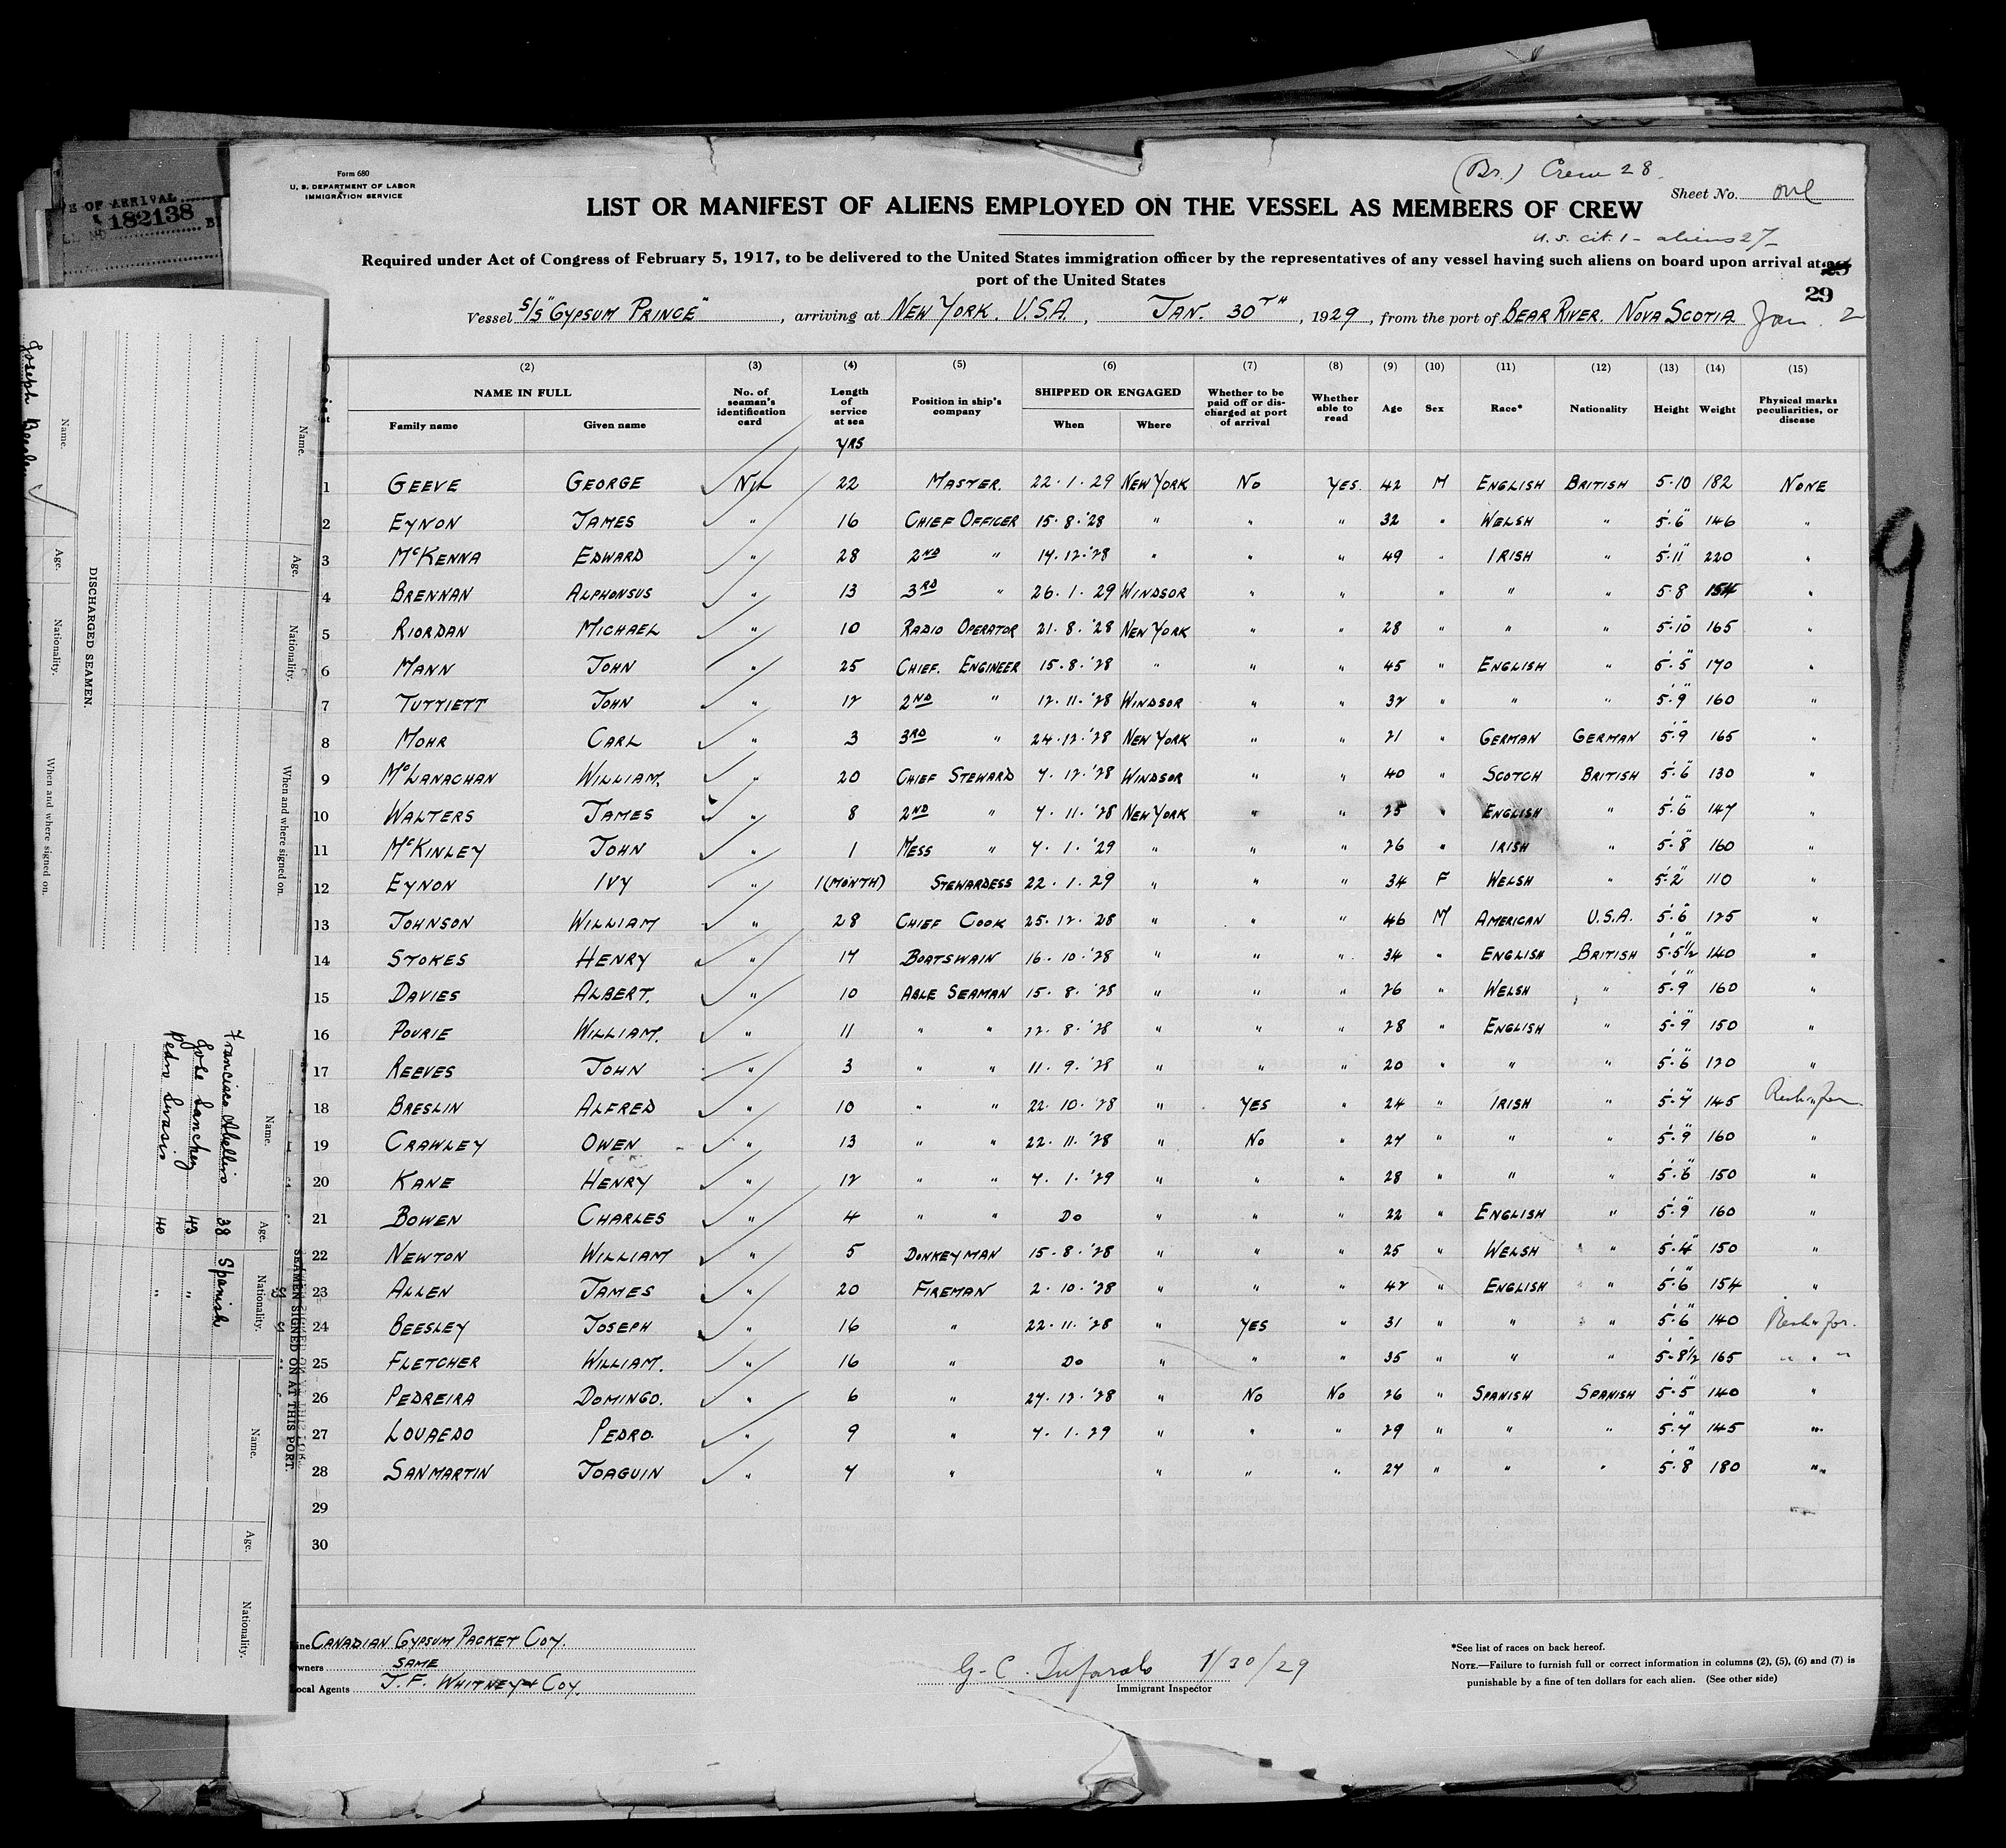 Form 680
U. S. DEPARTMENT OF LABOR
IMMIGRATION SERVICE
(Br.) Crew 28
Sheet No. one
LIST OR MANIFEST OF ALIENS EMPLOYED ON THE VESSEL AS MEMBERS OF CREW
U.S. cit. 1 - aliens 27-
Required under Act of Congress of February 5, 1917, to be delivered to the United States immigration officer by the representatives of any vessel having such aliens on board upon arrival at
port of the United States
29
Vessel S/S "GYPSUM PRINCE", arriving at NEW YORK. U.S.A., JAN. 30TH, 1929, from the port of BEAR RIVER. NOVA SCOTIA Jan. 2
(2) (3) (4) (5) (6) (7) (8) (9) (10) (11) (12) (13) (14) (15)
NAME IN FULL
Family name Given name
No. of seaman's identification card
Length of service at sea
YRS
Position in ship's company
SHIPPED OR ENGAGED
When Where
Whether to be paid off or discharged at port of arrival
Whether able to read
Age Sex Race* Nationality Height Weight
Physical marks peculiarities, or disease
1 GEEVE GEORGE NIL 22 MASTER. 22.1.29 NEW YORK NO YES. 42 M ENGLISH BRITISH 5-10 182 NONE
2 EYNON JAMES " 16 CHIEF OFFICER 15.8.'28 " " " 32 " WELSH " 5'.6" 146 "
3 McKENNA EDWARD " 28 2ND " 14.12.'28 " " " 49 " IRISH " 5'.11" 220 "
4 BRENNAN ALPHONSUS " 13 3RD " 26.1.29 WINDSOR " " " " " 5.8 154 "
5 RIORDAN MICHAEL " 10 RADIO OPERATOR 21.8.'28 NEW YORK " " 28 " " " 5'.10" 165 "
6 MANN JOHN " 25 CHIEF. ENGINEER 15.8.'28 " " " 45 " ENGLISH " 5'.5" 170 "
7 TUTTIETT JOHN " 12 2ND " 12.11.'28 WINDSOR " " 32 " " " 5'.9" 160 "
8 MOHR CARL " 3 3RD " 24.12.'28 NEW YORK " " 21 " GERMAN GERMAN 5'.9" 165 "
9 McLANACHAN WILLIAM. " 20 CHIEF STEWARD 7.12.'28 WINDSOR " " 40 " SCOTCH BRITISH 5'.6" 130 "
10 WALTERS JAMES " 8 2ND " 7.11.'28 NEW YORK " " 25 " ENGLISH " 5'.6" 147 "
11 McKINLEY JOHN " 1 MESS " 7.1.'29 " " " 26 " IRISH " 5'.8" 160 "
12 EYNON IVY " 1 (MONTH) STEWARDESS 22.1.29 " " " 34 F WELSH " 5'.2" 110 "
13 JOHNSON WILLIAM " 28 CHIEF COOK 25.12.28 " " " 46 M AMERICAN U.S.A. 5'.6" 125 "
14 STOKES HENRY " 17 BOATSWAIN 16.10.'28 " " " 34 " ENGLISH BRITISH 5'.5½" 140 "
15 DAVIES ALBERT. " 10 ABLE SEAMAN 15.8.'28 " " " 26 " WELSH " 5'.9" 160 "
16 POURIE WILLIAM. " 11 " " 22.8.'28 " " " 28 " ENGLISH " 5'.9" 150 "
17 REEVES JOHN " 3 " " 11.9.'28 " " " 20 " " " 5'.6" 120 "
18 BRESLIN ALFRED " 10 " " 22.10.'28 " YES " 24 " IRISH " 5'.7" 145
19 CRAWLEY OWEN " 13 " " 22.11.'28 " NO " 27 " " " 5'.9" 160 "
20 KANE HENRY " 12 " " 7.1.'29 " " " 28 " " " 5'.6" 150 "
21 BOWEN CHARLES " 4 " " DO " " " 22 " ENGLISH " 5'.9" 160 "
22 NEWTON WILLIAM " 5 DONKEYMAN 15.8.'28 " " " 25 " WELSH " 5'.4" 150 "
23 ALLEN JAMES " 20 FIREMAN 2.10.'28 " " " 42 " ENGLISH " 5'.6" 154 "
24 BEESLEY JOSEPH " 16 " 22.11.'28 " YES " 31 " " " 5'.6" 140
25 FLETCHER WILLIAM. " 16 " DO " " " 35 " " " 5'.8½" 165 " "
26 PEDREIRA DOMINGO. " 6 " 27.12.'28 " NO NO 26 " SPANISH SPANISH 5'.5" 140 "
27 LOUREDO PEDRO. " 9 " 7.1.29 " " " 29 " " " 5'.7" 145 "
28 SANMARTIN JOAQUIN " 7 " " " " 27 " " " 5'.8" 180 "
29
30
Line CANADIAN GYPSUM PACKET COY.
Owners SAME
Local Agents J. F. WHITNEY & COY.
1/30/29
Immigrant Inspector
*See list of races on back hereof.
NOTE.—Failure to furnish full or correct information in columns (2), (5), (6) and (7) is
punishable by a fine of ten dollars for each alien. (See other side)
E OF ARRIVAL
182138
DISCHARGED SEAMEN.
Name. Age. Nationality. When and where signed on.
Name. Age. Nationality. When and where signed on.
Joseph Beesley
SEAMEN SIGNED ON AT THIS PORT.
Name. Age. Nationality.
Francisco Abelleiro 38 Spanish
Jose Sanchez 43 "
Pedro Suasis 40 "
Name. Age. Nationality.